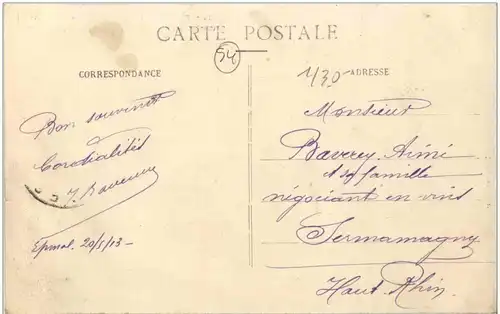 CARTE POSTALE
54
430
CORRESPONDANCE
ADRESSE
Bon souvenir
Cordialités
Epinal. 20/5/13-
Monsieur
Baverey Aimé
& sa famille
négociant en vins
Sermamagny
Haut-Rhin.